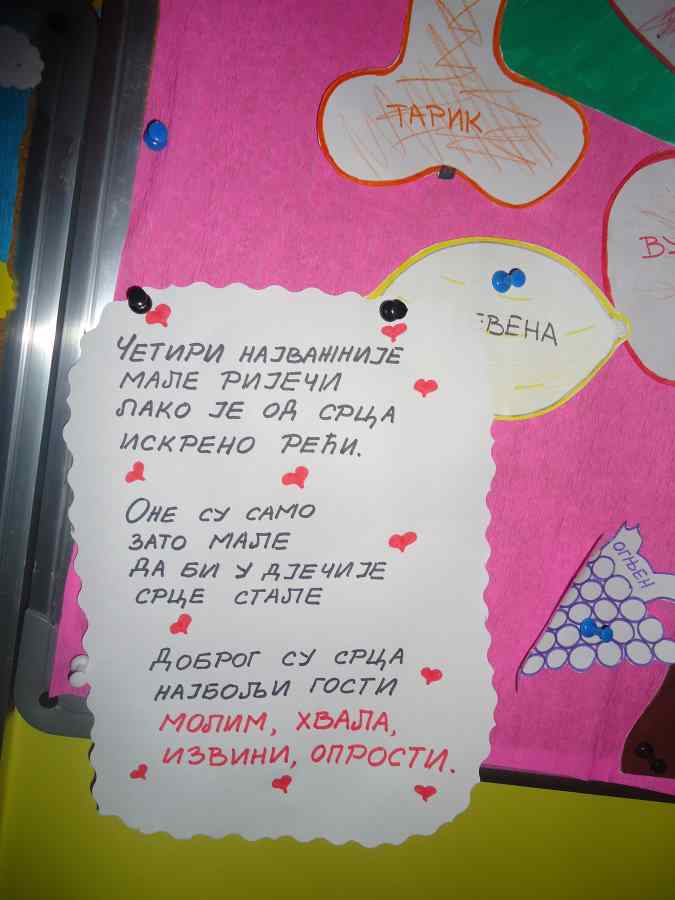 ТАРИК
Четири најважније
мале ријечи
лако је од срца
искрено рећи.
Оне су само
зато мале
да би у дјечије
срце стале
Доброг су срца
најбољи гости
молим, хвала,
извини, опрости.
ОГЊЕН